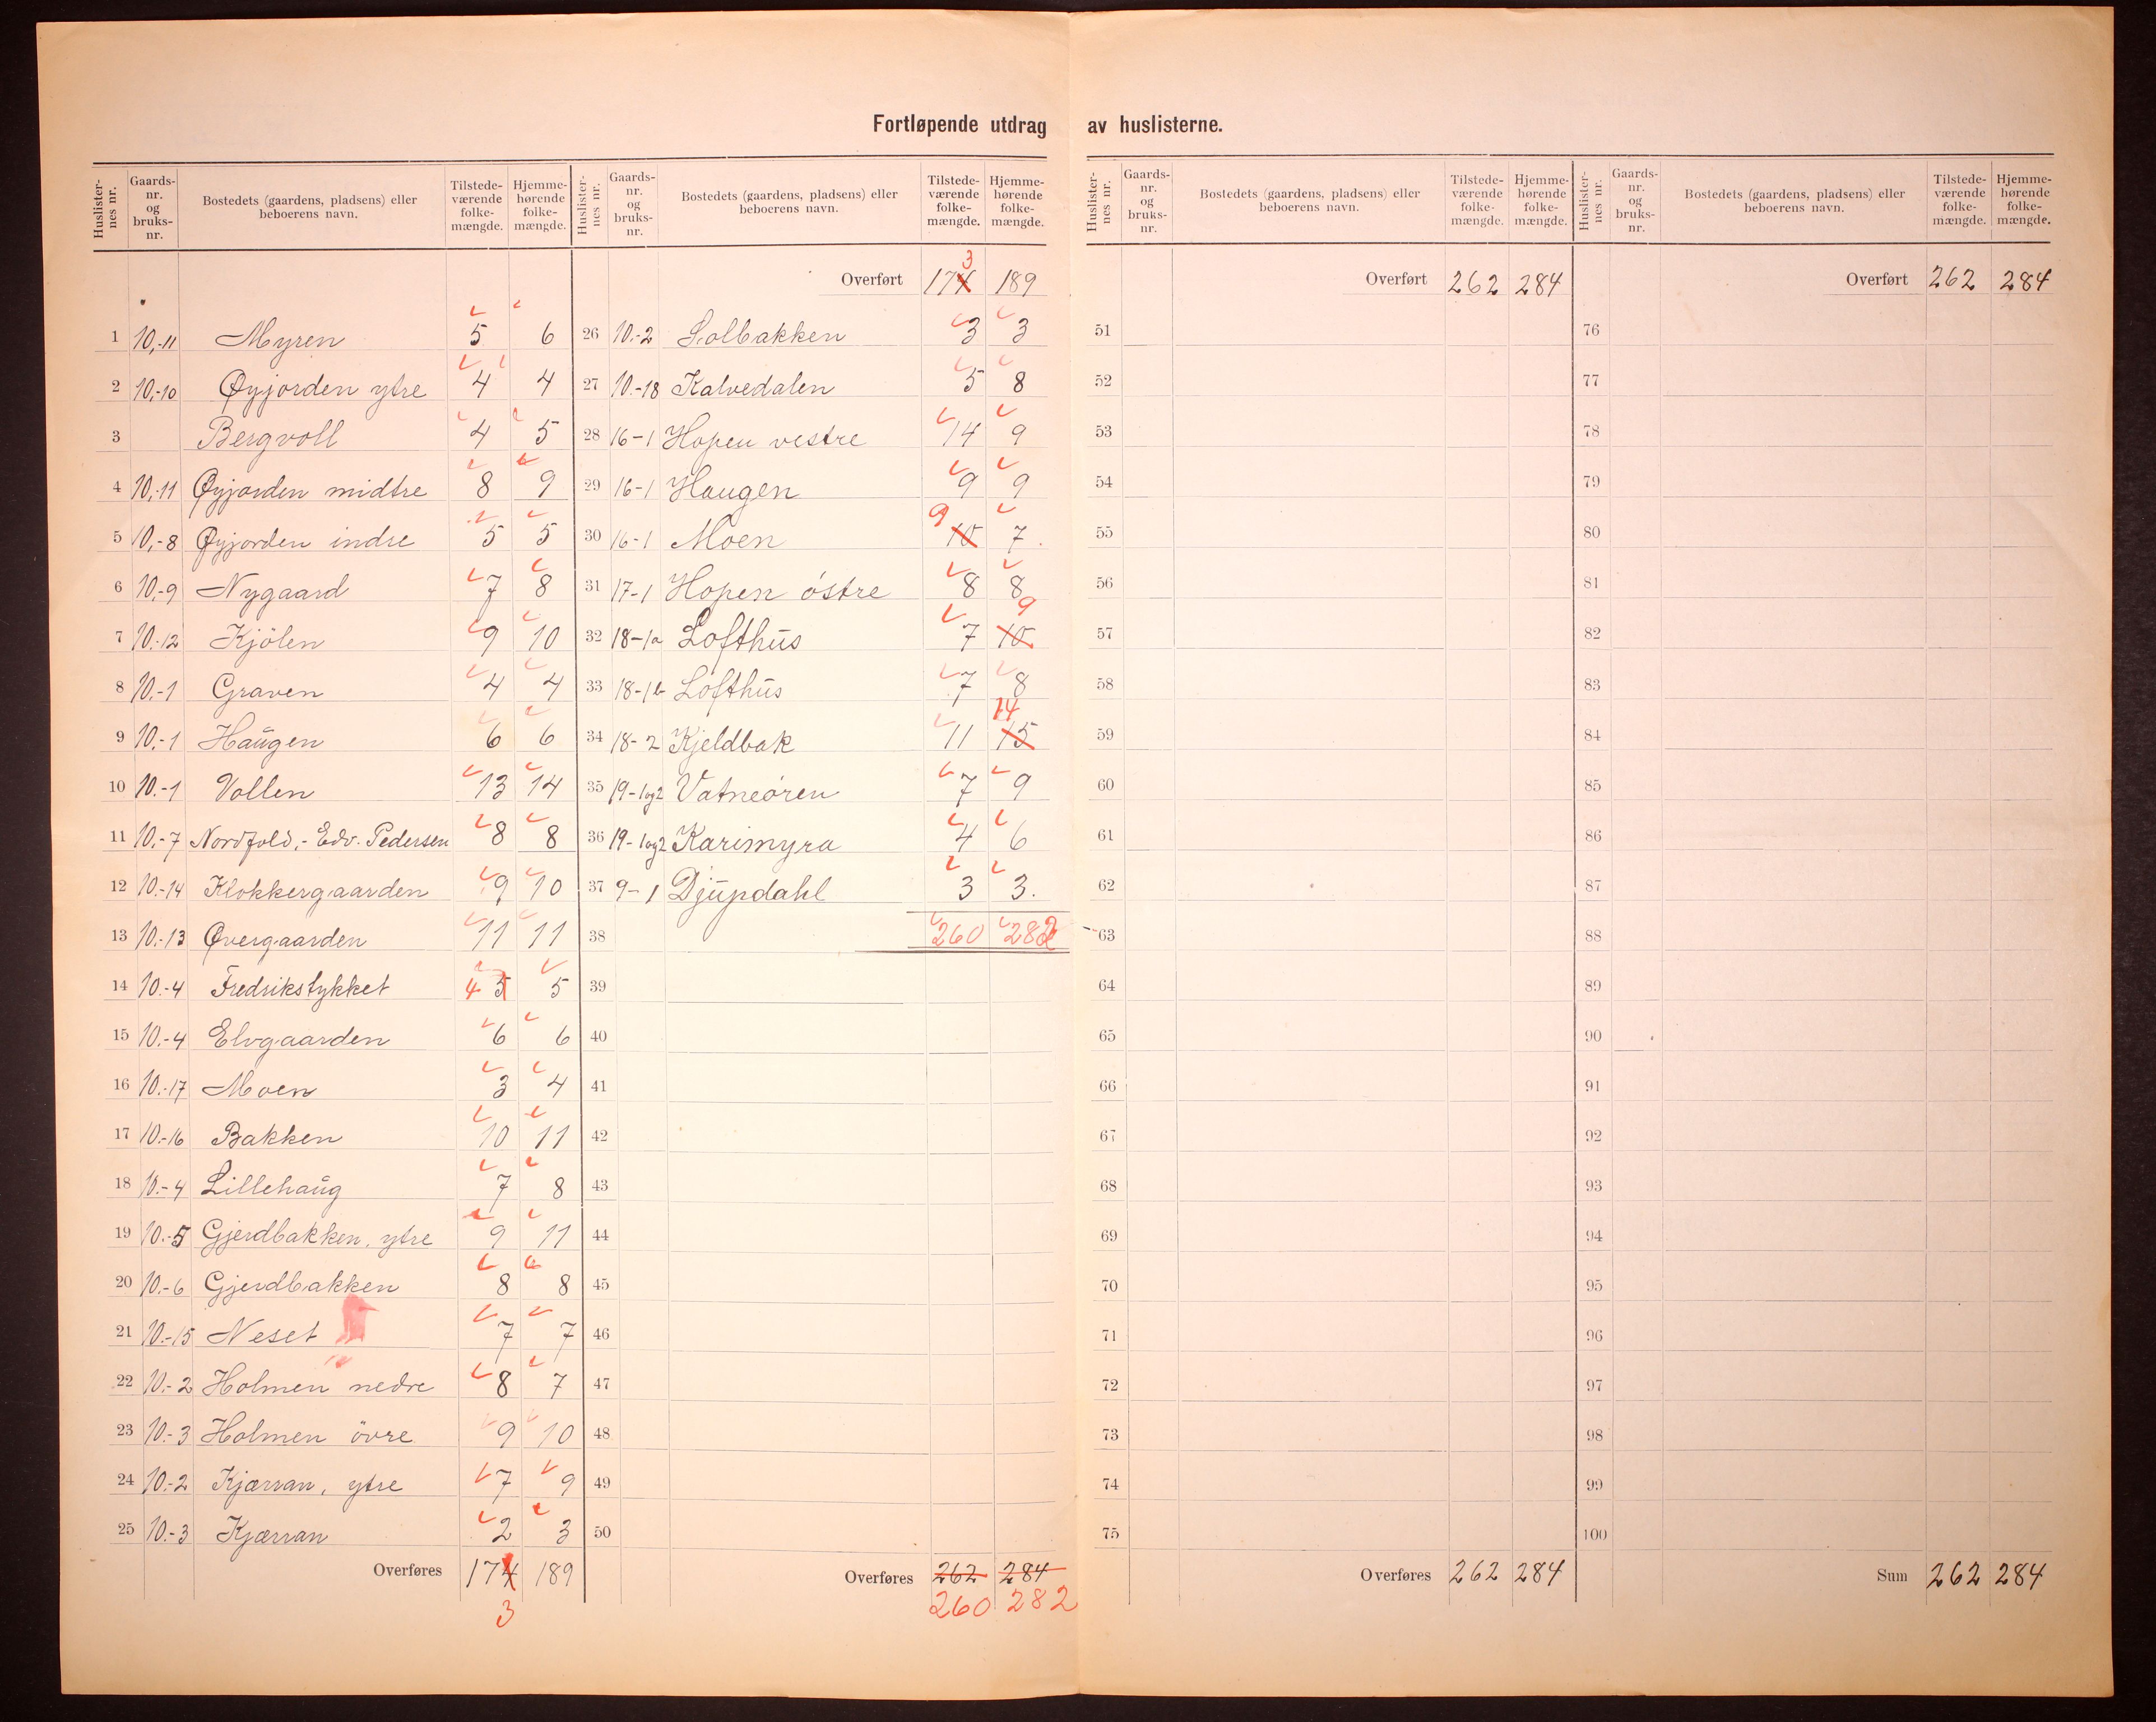 Fortløpende utdrag av huslisterne.
Huslisternes nr. Gaards-nr. og bruks-nr. Bostedets (gaardens, pladsens) eller beboerens navn. Tilstedeværende folkemængde. Hjemmehørende folkemængde.
1 10,-11 Myren 5 6
2 10,-10 Øyjorden ytre 4 4
3 Bergvoll 4 5
4 10,-11 Øyjorden midtre 8 9
5 10,-8 Øyjorden indre 5 5
6 10,-9 Nygaard 7 8
7 10.-12 Kjölen 9 10
8 10.-1 Graven 4 4
9 10.-1 Haugen 6 6
10 10.-1 Vollen 13 14
11 10.-7 Nordfold,- Edv. Pedersen 8 8
12 10.-14 Klokkergaarden 9 10
13 10.-13 Øvergaarden 11 11
14 10.-4 Fredrikstykket 4 5 5
15 10.-4 Elvgaarden 6 6
16 10.-17 Moen 3 4
17 10.-16 Bakken 10 11
18 10.-4 Lillehaug 7 8
19 10.-5 Gjerdbakken, ytre 9 11
20 10.-6 Gjerdbakken 8 8
21 10.-15 Neset 7 7
22 10.-2 Holmen nedre 8 7
23 10.-3 Holmen övre 9 10
24 10.-2 Kjærran, ytre 7 9
25 10.-3 Kjærran 2 3
Overføres 174 189
3
Huslisternes nr. Gaards-nr. og bruks-nr. Bostedets (gaardens, pladsens) eller beboerens navn. Tilstedeværende folkemængde. Hjemmehørende folkemængde.
3
Overført 174 189
26 10.-2 Solbakken 3 3
27 10.-18 Kalvedalen 5 8
28 16-1 Hopen vestre 14 9
29 16-1 Haugen 9 9
30 16-1 Moen 9 10 7.
31 17-1 Hopen östre 8 8
32 18-1a Lofthus 7 9 10
33 18-1b Lofthus 7 8
34 18-2 Kjeldbak 11 14 15
35 19-1og2 Vatneören 7 9
36 19-1og2 Karimyra 4 6
37 9-1 Djupdahl 3 3.
38 260 282
39
40
41
42
43
44
45
46
47
48
49
50
Overføres 262 284
260 282
Huslisternes nr. Gaards-nr. og bruks-nr. Bostedets (gaardens, pladsens) eller beboerens navn. Tilstedeværende folkemængde. Hjemmehørende folkemængde.
Overført 262 284
51
52
53
54
55
56
57
58
59
60
61
62
63
64
65
66
67
68
69
70
71
72
73
74
75
Overføres 262 284
Huslisternes nr. Gaards-nr. og bruks-nr. Bostedets (gaardens, pladsens) eller beboerens navn. Tilstedeværende folkemængde. Hjemmehørende folkemængde.
Overført 262 284
76
77
78
79
80
81
82
83
84
85
86
87
88
89
90
91
92
93
94
95
96
97
98
99
100
Sum 262 284